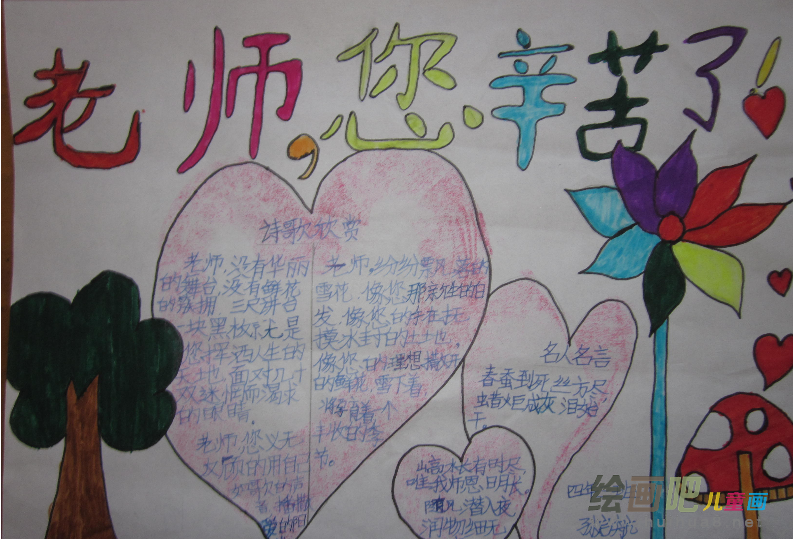 老师,您辛苦了!
诗歌欣赏
老师,没有华丽
的舞台,没有鲜花
的簇拥,三尺讲台
一块黑板就是
您挥洒人生的
天地,面对几十
双迷 而渴求
的眼睛。
老师,您义无
反顾的用自己
播撒
老师,纷纷
雪花,像您那 的白
发,像您的手在抚
摸冰封的土地,
像您的理想
的鲜花,雪下着,
将孕育着一个
丰收的季
节。
名人名言
春蚕到死丝方尽
蜡炬成灰泪始
干。
山高水长有时尽
唯我师恩日月长。
潜入夜
润物细无
四年
绘画吧儿童画